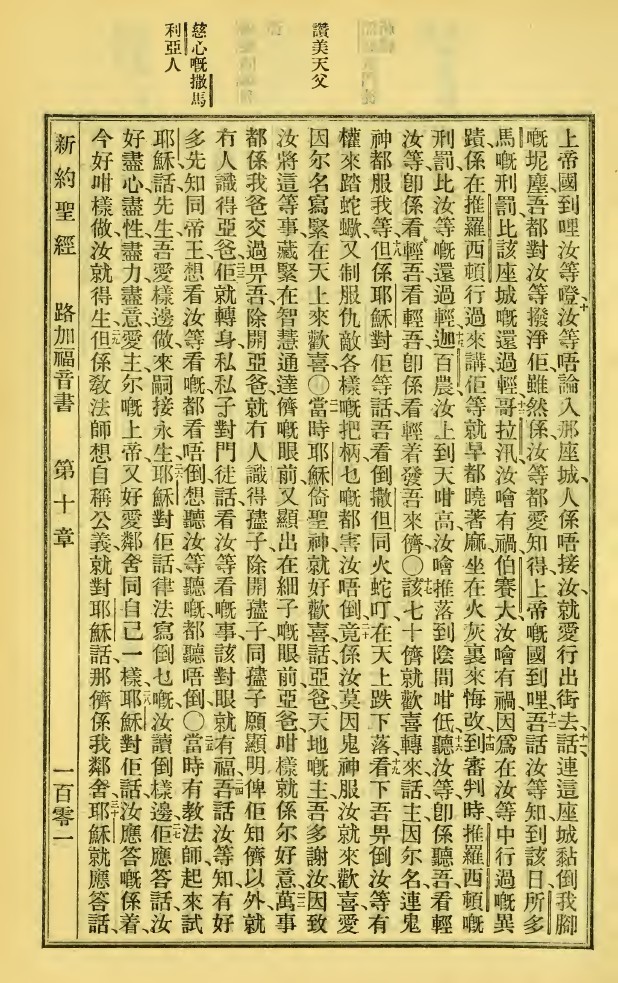 讚美天父
慈心嘅撒馬
利亞人
上帝國到哩汝等噔、十汝等唔論入那座城、人係唔接汝、就愛行出街去、話、十一連這座城黏倒我腳
嘅坭塵、吾都對汝等撥淨佢、雖然係汝等都愛知得上帝嘅國到哩、十二吾話汝等知、到該日、所多
馬嘅刑罰比該座城嘅還過輕、十三哥拉汛、汝噲有禍、伯賽大、汝噲有禍、因爲在汝等中行過嘅異
蹟、係在推羅西頓行過來講、佢等就早都曉著麻坐在火灰裏來悔改、十四到審判時、推羅西頓嘅
刑罰比汝等嘅還過輕、十五迦百農、汝上到天咁高、汝噲推落到陰間咁低、十六聽汝等、卽係聽吾、看輕
汝等、卽係看輕吾、看輕吾、卽係看輕着發吾來儕、〇十七該七十儕就歡喜轉來話、主、因尔名、連鬼
神都服我等、十八但係耶穌對佢等話、吾看倒撒但同火蛇叮、在天上跌下落、十九看下、吾畀倒汝等有
權來踏蛇蠍、又制服仇敵各樣嘅把柄、乜嘅都害汝唔倒、二十竟係汝莫因鬼神服汝就來歡喜、愛
因尔名寫緊在天上來歡喜、〇二一當時耶穌倚聖神就好歡喜、話、亞爸、天地嘅主、吾多謝汝、因致
汝將這等事藏緊在智慧通達儕嘅眼前、又顯出在細子嘅眼前、亞爸、咁樣就係尔好意、二二萬事
都係我爸交過畀吾、除開亞爸、就冇人識得㩓子、除開㩓子、同㩓子願顯明俾佢知儕以外、就
冇人識得亞爸、二三佢就轉身私私子對門徒話、看汝等看嘅事該對眼就有福、二四吾話汝等知、有好
多先知同帝王、想看汝等看嘅、都看唔倒、想聽汝等聽嘅、都聽唔倒、〇二五當時有教法師起來試
耶穌、話、先生、吾愛樣邊做、來嗣接永生、二六耶穌對佢話、律法寫倒乜嘅、汝讀倒樣邊、二七佢應答話、汝
好盡心、盡性、盡力、盡意、愛主尔嘅上帝、又好愛鄰舍同自己一樣、二八耶穌對佢話、汝應答嘅係着、
今好咁樣做、汝就得生、二九但係教法師想自稱公義、就對耶穌話、那儕係我鄰舍、三十耶穌就應答話、
新約聖經 路加福音書 第十章 一百零一